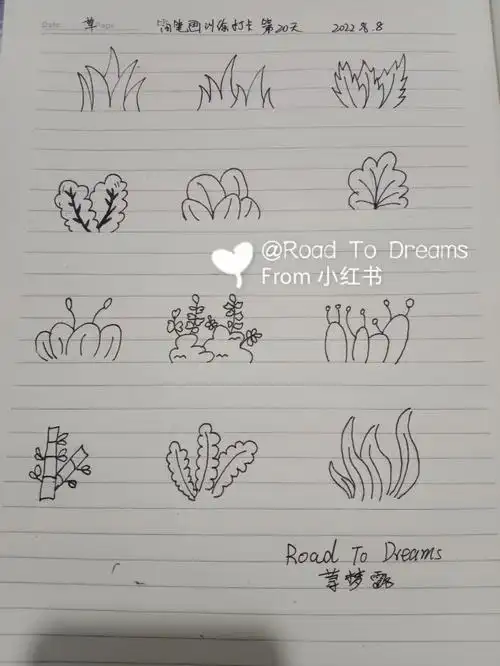 Date: 草 Page: 简笔画训练打卡 第20天 2022.8.8
@Road To Dreams
From 小红书
Road To Dreams
草梦露